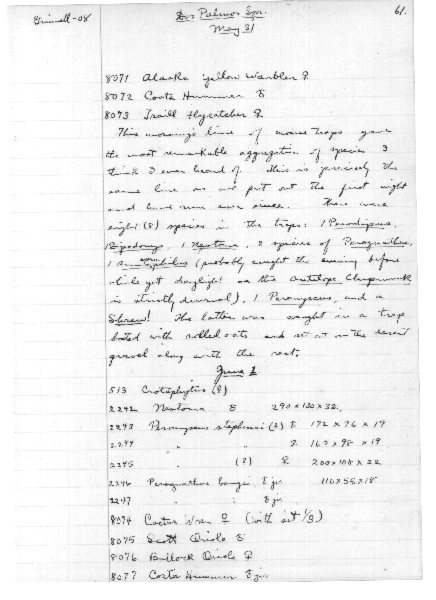 Grinnell-08
Dos Palmos Spr.
61.
May 31
8071 Alaska Yellow Warbler ♀
8072 Costa Hummer ♂
8073 Traill Flycatcher ♀
This morning's line of mouse traps gave
the most remarkable aggregation of species I
think I ever heard of. This is precisely the
same line as we put out the first night
and have run ever since. There were
eight (8) species in the traps: 1 Perodipus,
1 Dipodomys, 1 Neotoma, 2 species of Perognathus,
1 Ammospermophilus (probably caught the evening before
while yet daylight as this Antelope Chipmunk
is strictly diurnal), 1 Peromyscus, and a
Shrew! The latter was caught in a trap
baited with rolled oats and set out on the desert
gravel along with the rest.
June 1
513 Crotaphytus (?)
2242 Neotoma ♂ 290 x 130 x 32.
2243 Peromyscus stephensi (?) ♂ 172 x 96 x 19
2244 " " ♀ 167 x 98 x 19
2245 " (?) ♀ 200 x 108 x 22
2246 Perognathus ♂ jv. 110 x 55 x 18
2247 " ♂ jv.
8074 Cactus Wren ♀ (with set 1/3)
8075 Scott Oriole ♂
8076 Bullock Oriole ♀
8077 Costa Hummer ♂ jv.